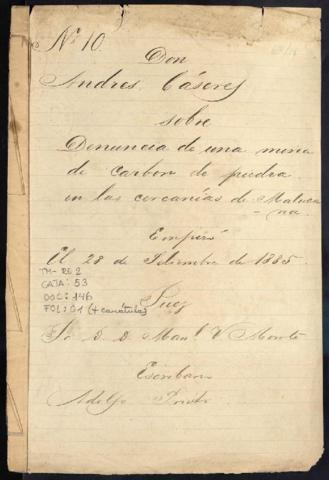 Nº 10.
Don
Andres Cáseres
sobre
Denuncia de una mina
de carbon de piedra
en las cercanías de Matuca
-na.
Empezó
El 28 de Setiembre de 1885.
TM-RE 2
CAJA: 53
DOC: 146
FOL: 01 (+ carátula)
Juez
Sr D. D. Manl V. Morote
Escribano
Adolfo Prieto